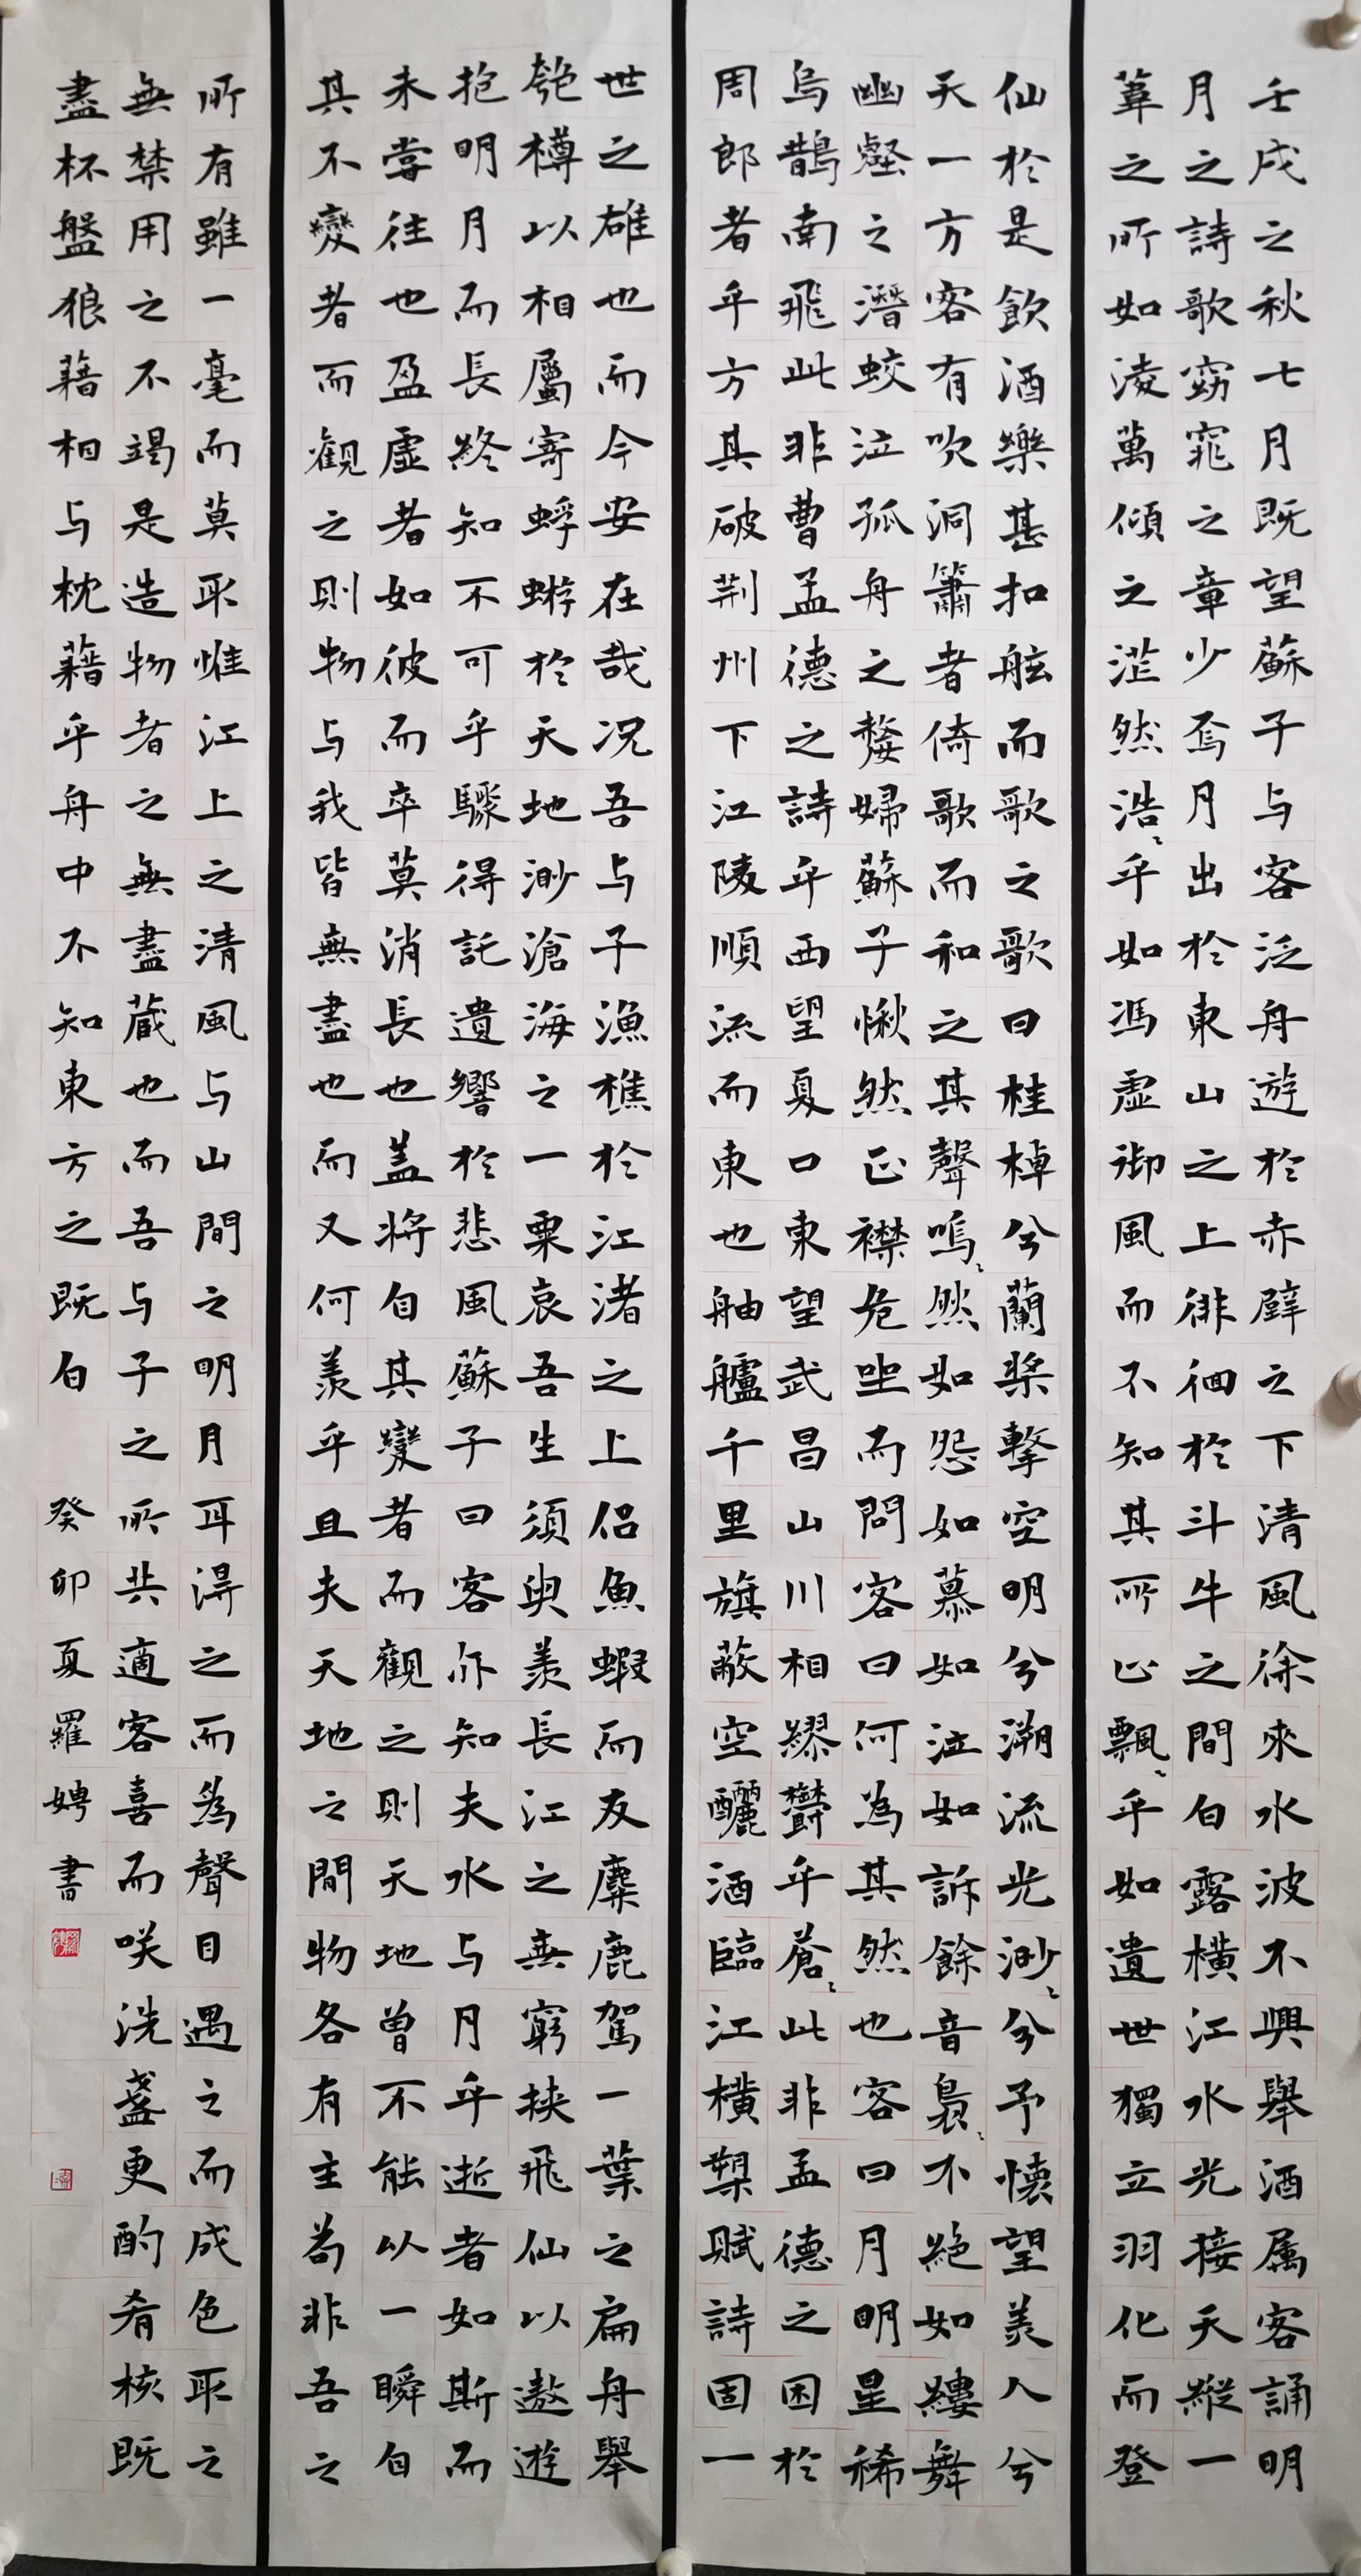 壬戌之秋七月既望蘇子与客泛舟遊於赤壁之下清風徐來水波不興舉酒属客誦明
月之詩歌窈窕之章少焉月出於東山之上徘徊於斗牛之間白露橫江水光接天縱一
葦之所如淩萬傾之茫然浩〻乎如馮虛御風而不知其所止飄〻乎如遺世獨立羽化而登
仙於是飲酒樂甚扣舷而歌之歌曰桂棹兮蘭槳擊空明兮溯流光渺〻兮予懷望美人兮
天一方客有吹洞簫者倚歌而和之其聲嗚〻然如怨如慕如泣如訴餘音裊〻不絕如縷舞
幽壑之潛蛟泣孤舟之嫠婦蘇子愀然正襟危坐而問客曰何為其然也客曰月明星稀
烏鵲南飛此非曹孟德之詩乎西望夏口東望武昌山川相繆鬱乎蒼〻此非孟德之困於
周郎者乎方其破荆州下江陵順流而東也舳艫千里旗蔽空釃酒臨江橫槊賦詩固一
世之雄也而今安在哉况吾与子漁樵於江渚之上侣魚蝦而友麋鹿駕一葉之扁舟舉
匏樽以相屬寄蜉蝣於天地渺滄海之一粟哀吾生須臾羨長江之無窮挾飛仙以遨遊
抱明月而長終知不可乎驟得託遺響於悲風蘇子曰客亦知夫水与月乎逝者如斯而
未嘗往也盈虛者如彼而卒莫消長也盖將自其變者而觀之則天地曾不能以一瞬自
其不變者而觀之則物与我皆無盡也而又何羨乎且夫天地之間物各有主苟非吾之
所有雖一毫而莫取惟江上之清風与山間之明月耳得之而為聲目遇之而成色取之
無禁用之不竭是造物者之無盡藏也而吾与子之所共適客喜而咲洗盞更酌肴核既
盡杯盤狼藉相与枕藉乎舟中不知東方之既白 癸卯夏羅娉書